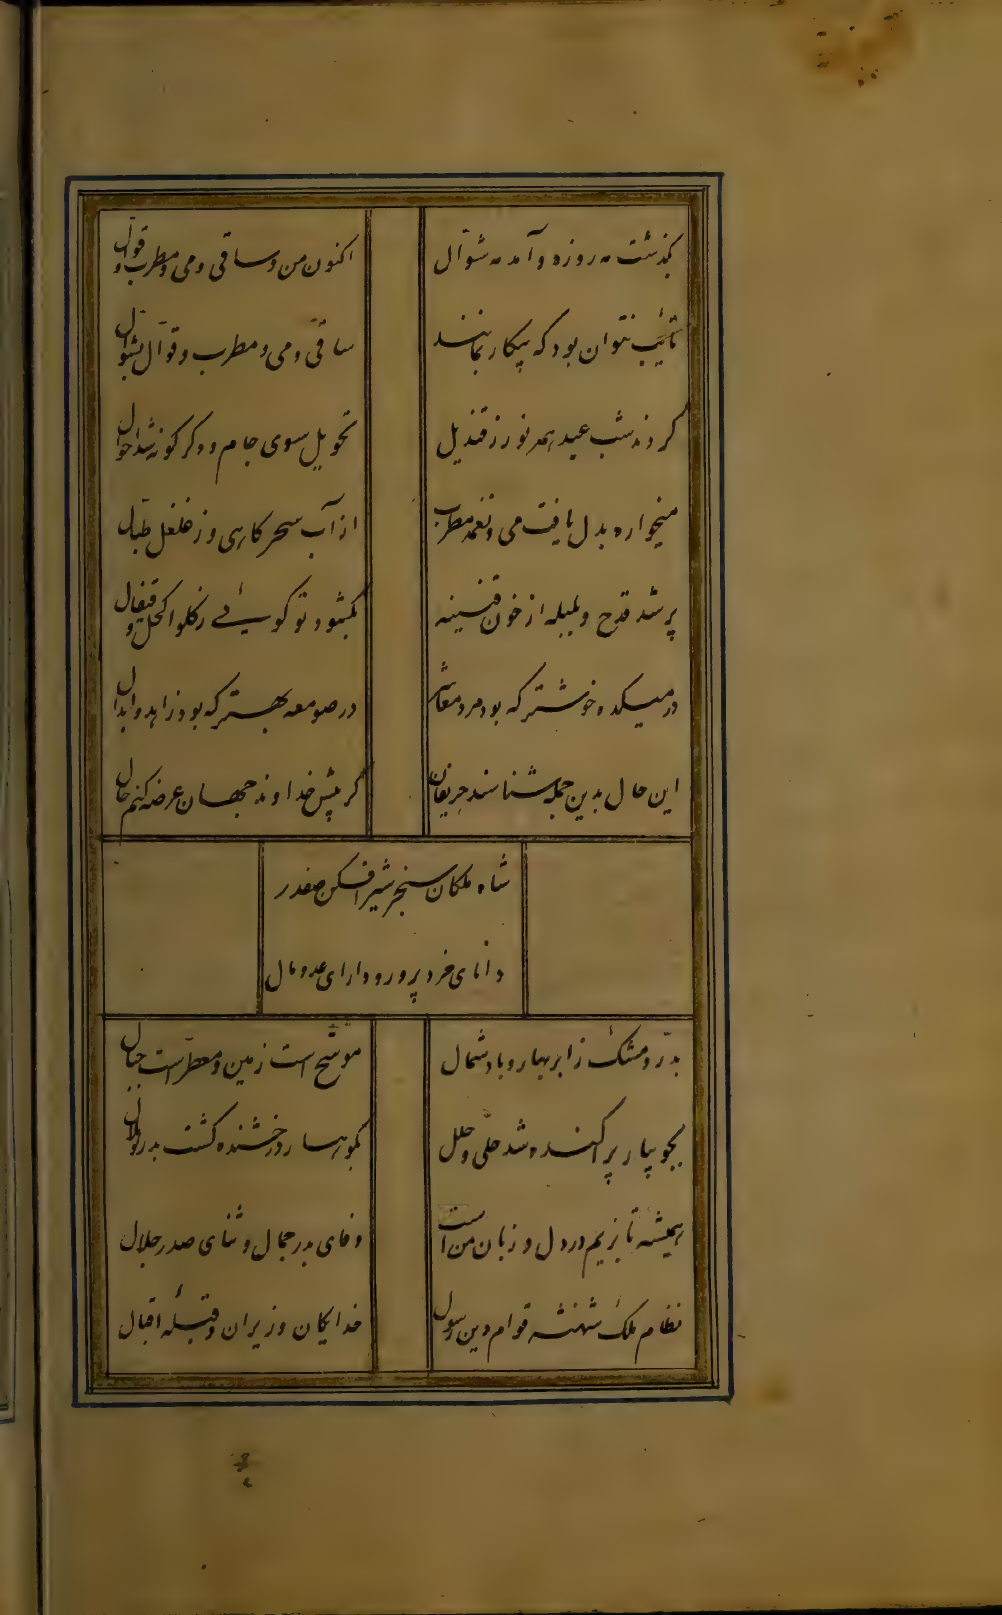 بگذشت مه روزه و آمد مه شوّال
اکنون من و ساقی و می و مطرب و قوّال
تائب نتوان بود که بیکار بمانند
ساقی و می و مطرب و قوّال بشوّال
کردند شب عید همه نور ز قندیل
تحویل سوی جام و دگرگونه شد احوال
میخواره بدل یافت می و نغمه مطرب
از آب سحرگاهی و ز غلغل طبّال
پر شد قدح و بلبله از خون قنینه
بگشود تو گوئی رگ اکحل و قیفال
در میکده خوشتر که بود مرد معاشر
در صومعه بهتر که بود زاهد و ابدال
این حال بدین جمله شناسند حریفان
گر پیش خداوند جهان عرضه کنم حال
شاه ملکان سنجر شیرافکن صفدر
دانای خردپرور و دارای عدومال
بدرّ و مشک ز ابر بهار و باد شمال
موشّح است زمین و معطّر است جبال
بجویبار پراکنده شد حلی و حلل
بکوهسار درخشنده گشت بدر و هلال
همیشه تا بزیم در دل و زبان من است
وفای بدر جمال و ثنای صدر جلال
نظام ملک شهنشه قوام دین رسول
خدایگان وزیران و قبلهٔ اقبال